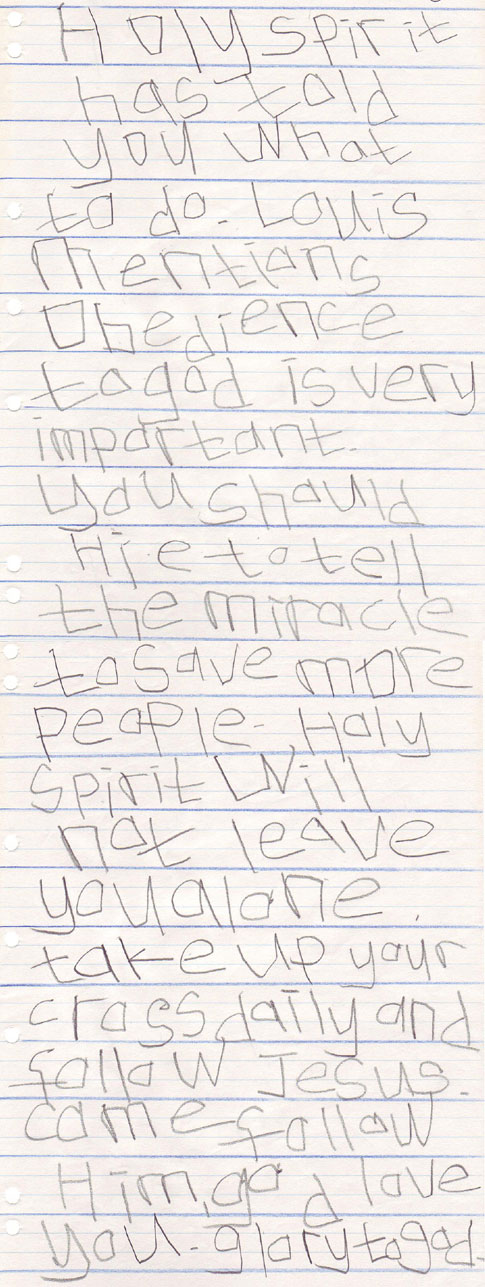 Holy spirit
has told
you what
to do. Louis
mentions
Obedience
to god is very
important.
you should
Hie to tell
the miracle
to save more
people. Holy
spirit Will
not leave
you alone.
take up your
cross daily and
follow Jesus.
come follow
Him, god love
you. glory to god.